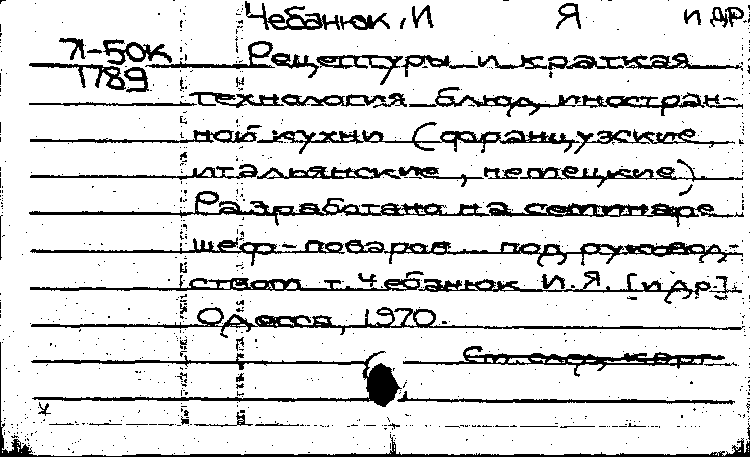 Чебанюк, И Я и др
71-50к
1789
Рецептуры и краткая
технология блюд иностран-
ной кухни (французские,
итальянские, немецкие).
Разработано на семинаре
шеф-поваров... под руковод-
ством т. Чебанюк И.Я. [и др.]
Одесса, 1970.
См. след. карт.